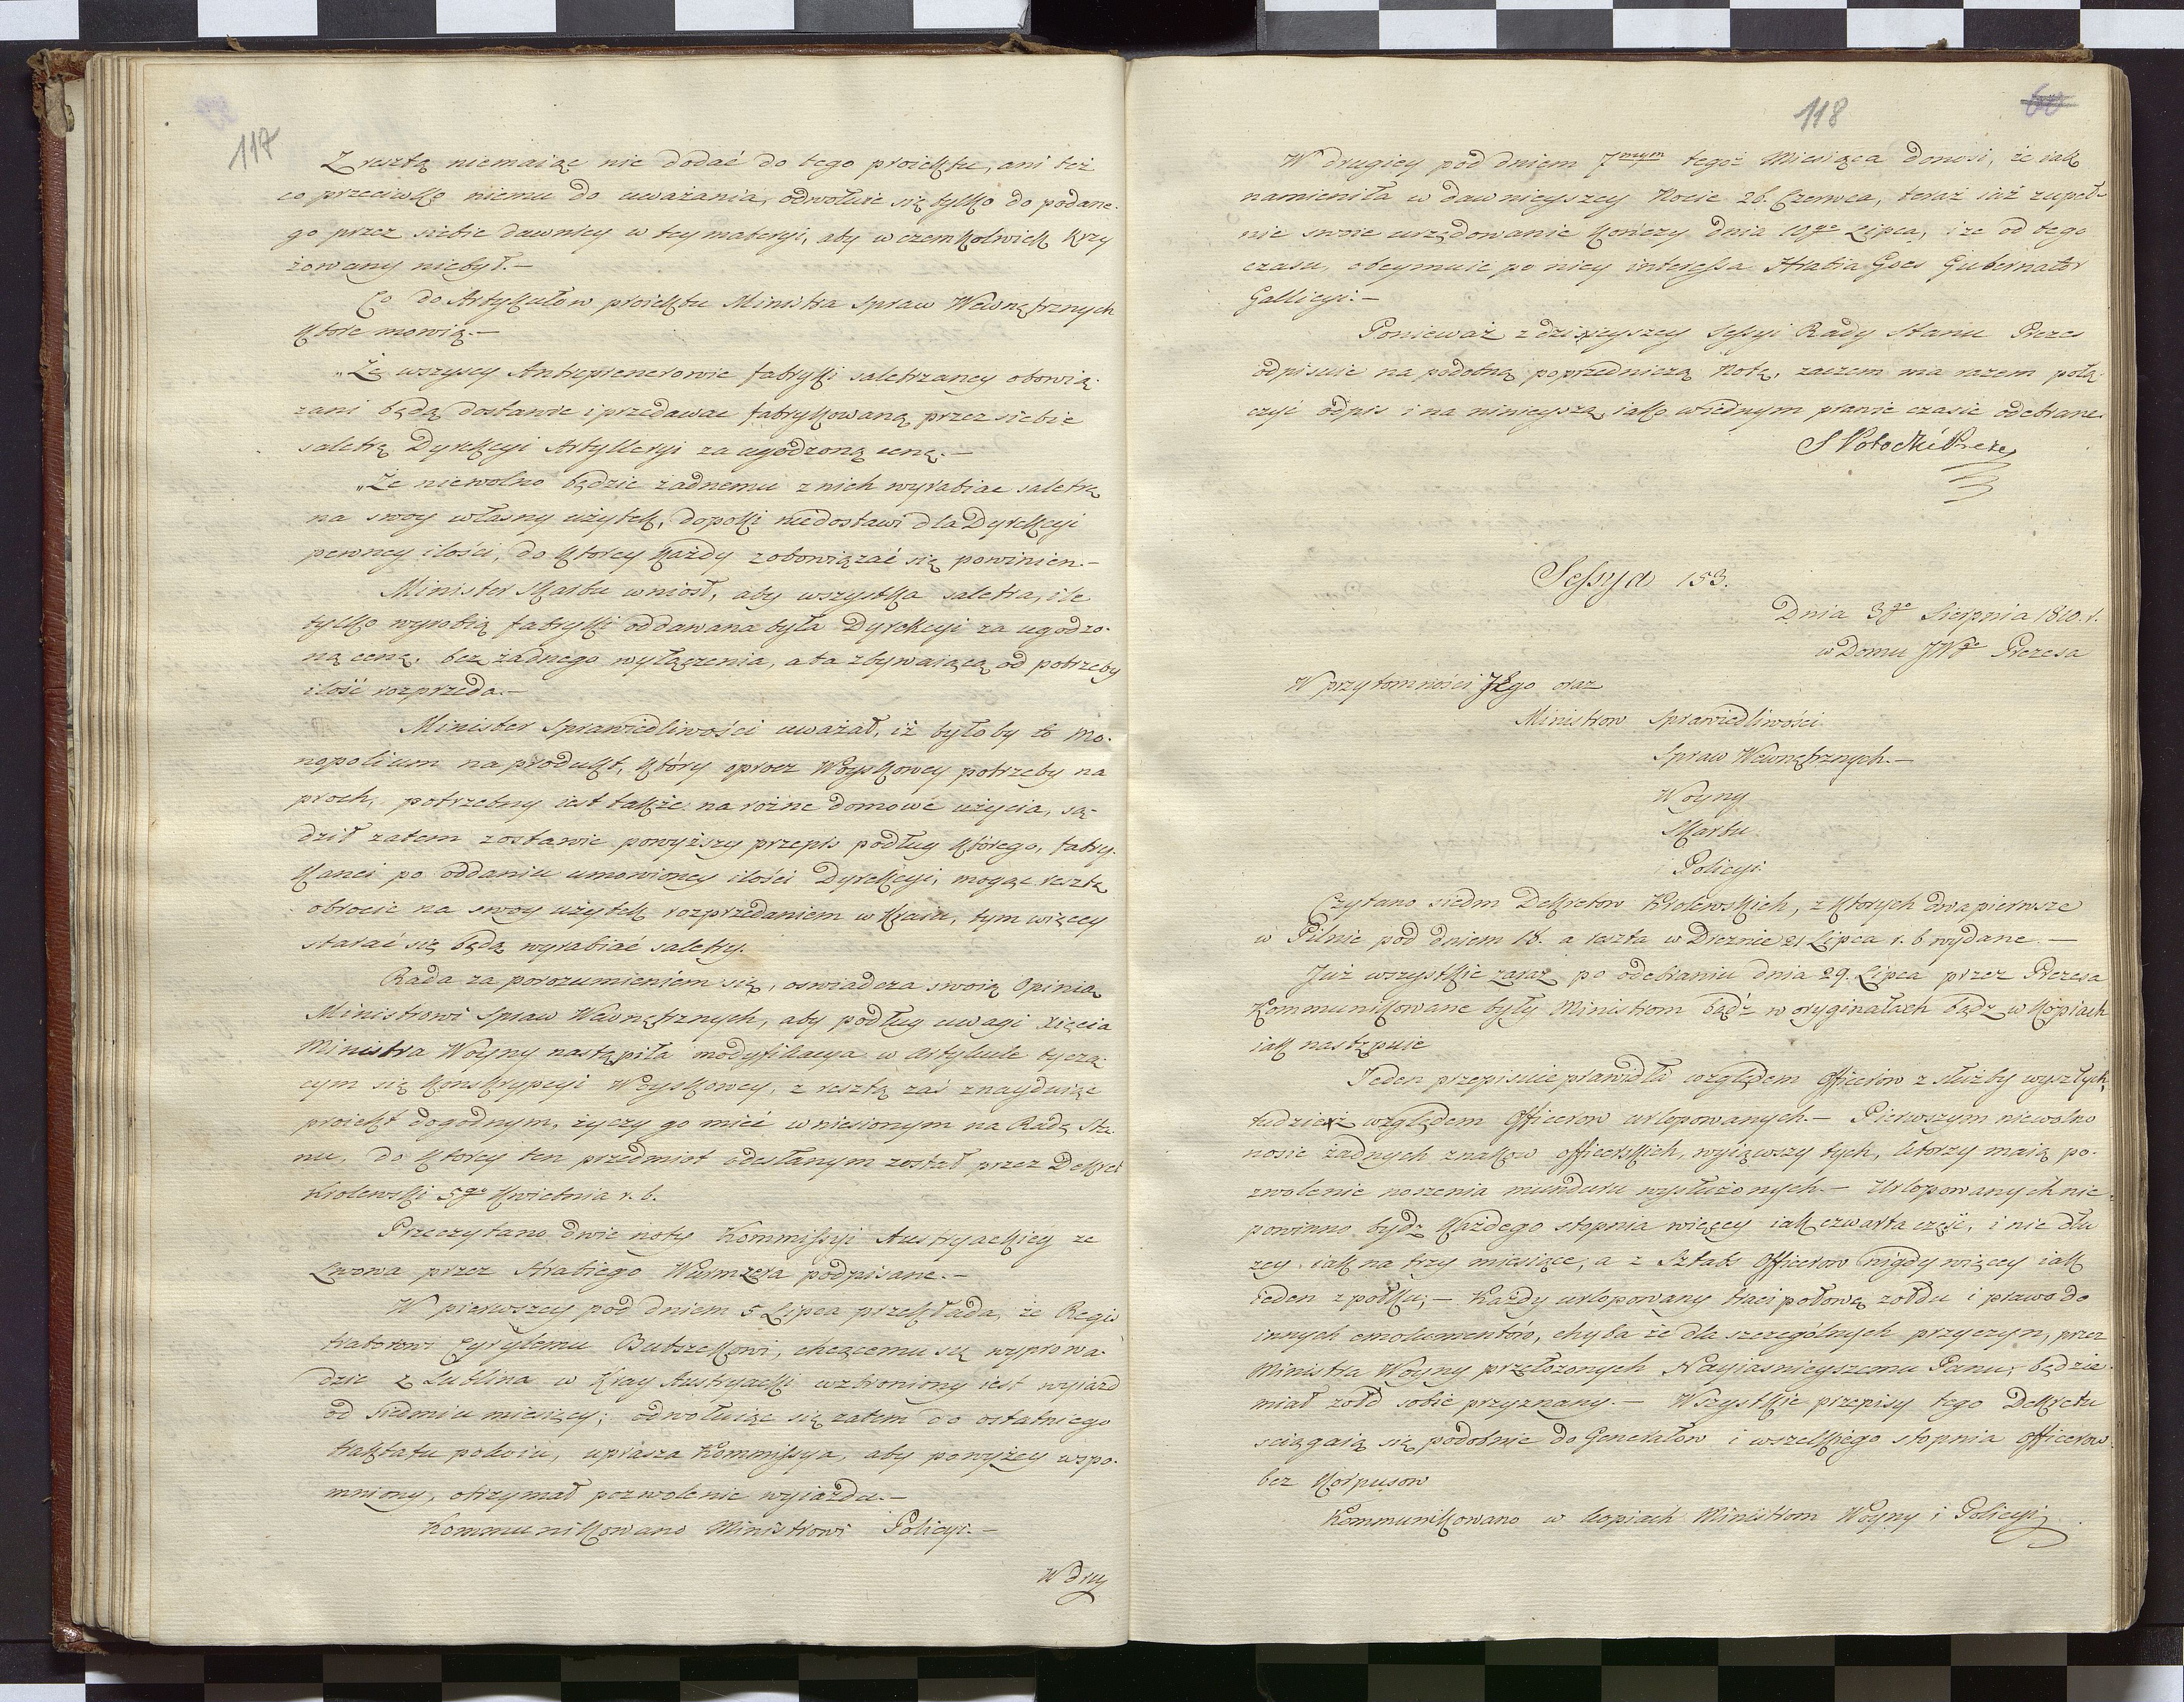 117
Z resztą niemaiąc nic dodać do tego proiektu, ani też
co przeciwko niemu do uważania, odwołuie się tylko do podane-
go przez siebie dawniey w tey materyi, aby w czemkolwiek krzy
żowany niebył.—
Co do Artykułow proiektu Ministra Spraw Wewnętrznych
ktore mowią.—
„Że wszyscy Antreprenerowie fabryki saletrzaney obowią-
zani będą dostawić i przedawac fabrykowaną przez siebie
saletrę Dyrekcyi Artylleryi za ugodzoną cenę.—
„Że niewolno będzie żadnemu z nich wyrabiac saletrę
na swoy własny użytek, dopoki niedostawi dla Dyrekcyi
pewney ilości, do ktorey każdy zobowiązać się powinien.—
Minister Skarbu wniosł, aby wszystka saletra, ile
tylko wyrobią fabryki oddawana była Dyrekcyi za ugodzo-
ną cenę, bez żadnego wyłączenia, a ta zbywaiącą od potrzeby
ilość rozprzeda.—
Minister Sprawiedliwości uważał, iż było by to Mo-
nopolium na produkt, który oprocz Woyskowey potrzeby na
proch, potrzebny iest także na rożne domowe użycia, są-
dził zatem zostawić powyższy przepis podług którego, fabry-
kanci po oddaniu umowioney ilości Dyrekcyi, mogąc resztę
obrocic na swoy użytek rozprzedaniem w Kraiu, tym więcey
starać się będą wyrabiać saletry.
Rada za porozumieniem się, oswiadcza swoią Opinią
Ministrowi Spraw Wewnętrznych, aby podług uwagi xięcia
Ministra Woyny nastąpiła modyfikacya w Artykule tyczą-
cym się konskrypcyi Woyskowey, z resztą zaś znayduiąc
proiekt dogodnym, życzy go mieć wniesionym na Radę Sta-
nu, do ktorey ten przedmiot odesłanym został przez Dekret
Krolewski 5go Kwietnia r. b.
Przeczytano dwie noty Kommissyi Austryackiey ze
Lwowa przez Hrabiego Wurmzera podpisane.—
W pierwszey pod dniem 5 Lipca przekłada, że Regis
tratorowi Cyrylemu Butszekowi, chcącemu się wyprowa-
dzic z Lublina w Kray Austryacki wzbroniony iest wyiazd
od siedmiu miesięcy; odwołuiąc się zatem do ostatniego
traktatu pokoiu, uprasza Kommissya, aby powyżey wspo-
mniony, otrzymał pozwolenie wyiazdu.—
Kommunikowano Ministrowi Policyi.—
W drug
118
60
W drugiey pod dniem 7mym tegoż Miesiąca donosi, że iak
namieniła w dawnieyszey Nocie 26. Czerwca, teraz iuż zupeł-
nie swoie urzędowanie kończy dnia 10go Lipca, i że od tego
czasu, obeymuie po niey interessa Hrabia Goes Gubernator
Gallicyi.—
Ponieważ z dzisieyszey Sessyi Rady Stanu Prezes
odpisuie na podobną poprzedniczą Notę, zaczem ma razem połą-
czyć odpis i na ninieyszą iako wiednym prawie czasie odebrane.
S Potocki Prezes
Sessya 153.
Dnia 3go Sierpnia 1810. r.
w Domu JWgo Prezesa
W przytomności Jego oraz
Ministrow Sprawiedliwości
Spraw Wewnętrznych.—
Woyny
Skarbu
i Policyi
Czytano siedm Dekretow Krolewskich, z ktorych dwa pierwsze
w Pilnic pod dniem 18. a reszta w Dreznie 21 Lipca r. b wydane.—
Już wszystkie zaraz po odebraniu dnia 29. Lipca przez Prezesa
Kommunikowane były Ministrom bądź w oryginałach bądź w kopiach
iak następuie
Jeden przepisuie prawidła względem Officerow z służby wyszłych,
tudzież względem Officerow urlopowanych.— Pierwszym niewolno
nosic żadnych znakow officerskich, wyiąwszy tych, ktorzy maią po-
zwolenie noszenia munduru wysłużonych.— Urlopowanych nie
powinno bydź każdego stopnia więcey iak czwarta część, i nie dłu
żey iak na trzy miesiące, a z Sztabs Officerow nigdy więcey iak
ieden z pułku;— Każdy urlopowany traci połowę żołdu i prawo do
innych emolumentów, chyba że dla szczególnych przyczyn, przez
Ministra Woyny przełożonych Nayiasnieyszemu Panu, będzie
miał żołd sobie przyznany.— Wszystkie przepisy tego Dekretu
sciągaią się podobnie do Generałow i wszelkiego stopnia officerow
bez Korpusow
Kommunikowano w kopiach Ministrom Woyny i Policyi